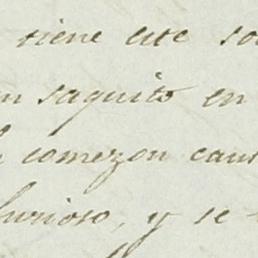 tiene este so
n saquito en
comezon caus
furioso, y se